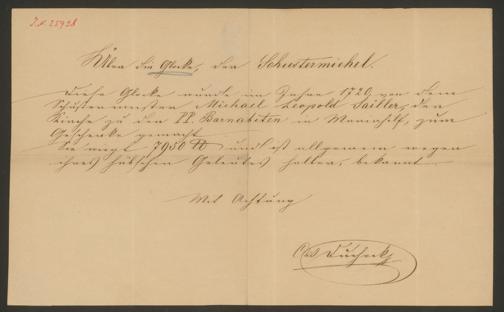 I.N. 25928
Über die Glocke, der Schustermichel.
Diese Glocke wurde im Jahre 1720 von dem
Schustermeister Michael Leopold Sailler, der
Kirche zu den PP. Barnabiten in Mariahilf, zum
Geschenke gemacht.
Sie wiegt 7950 ℔ und ist allgemein wegen
ihres hübschen Geleutes halber, bekannt.
Mit Achtung